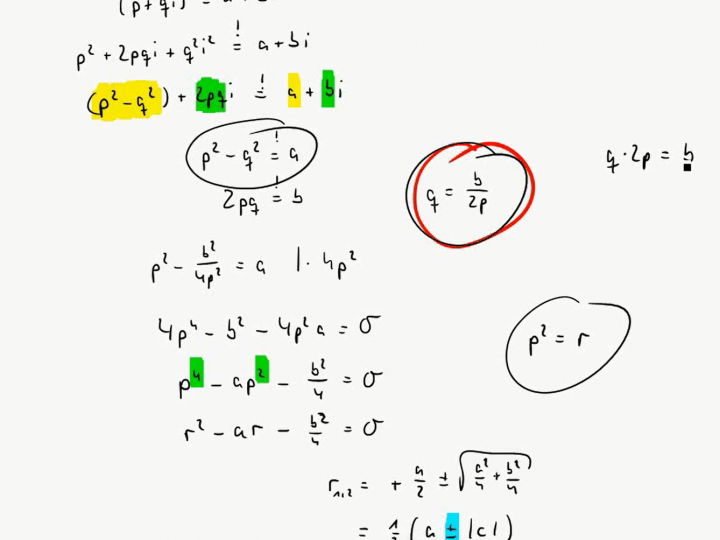 (p+qi)
p² + 2pqi + q²i² =! a + bi
(p² - q²) + 2pqi =! a + bi
p² - q² =! a
2pq =! b
q = b/2p
q · 2p = b
p² - b²/4p² = a | · 4p²
4p⁴ - b² - 4p²a = 0
p² = r
p⁴ - ap² - b²/4 = 0
r² - ar - b²/4 = 0
r₁,₂ = + a/2 ± √(a²/4 + b²/4)
= 1/2 (a ± |c|)